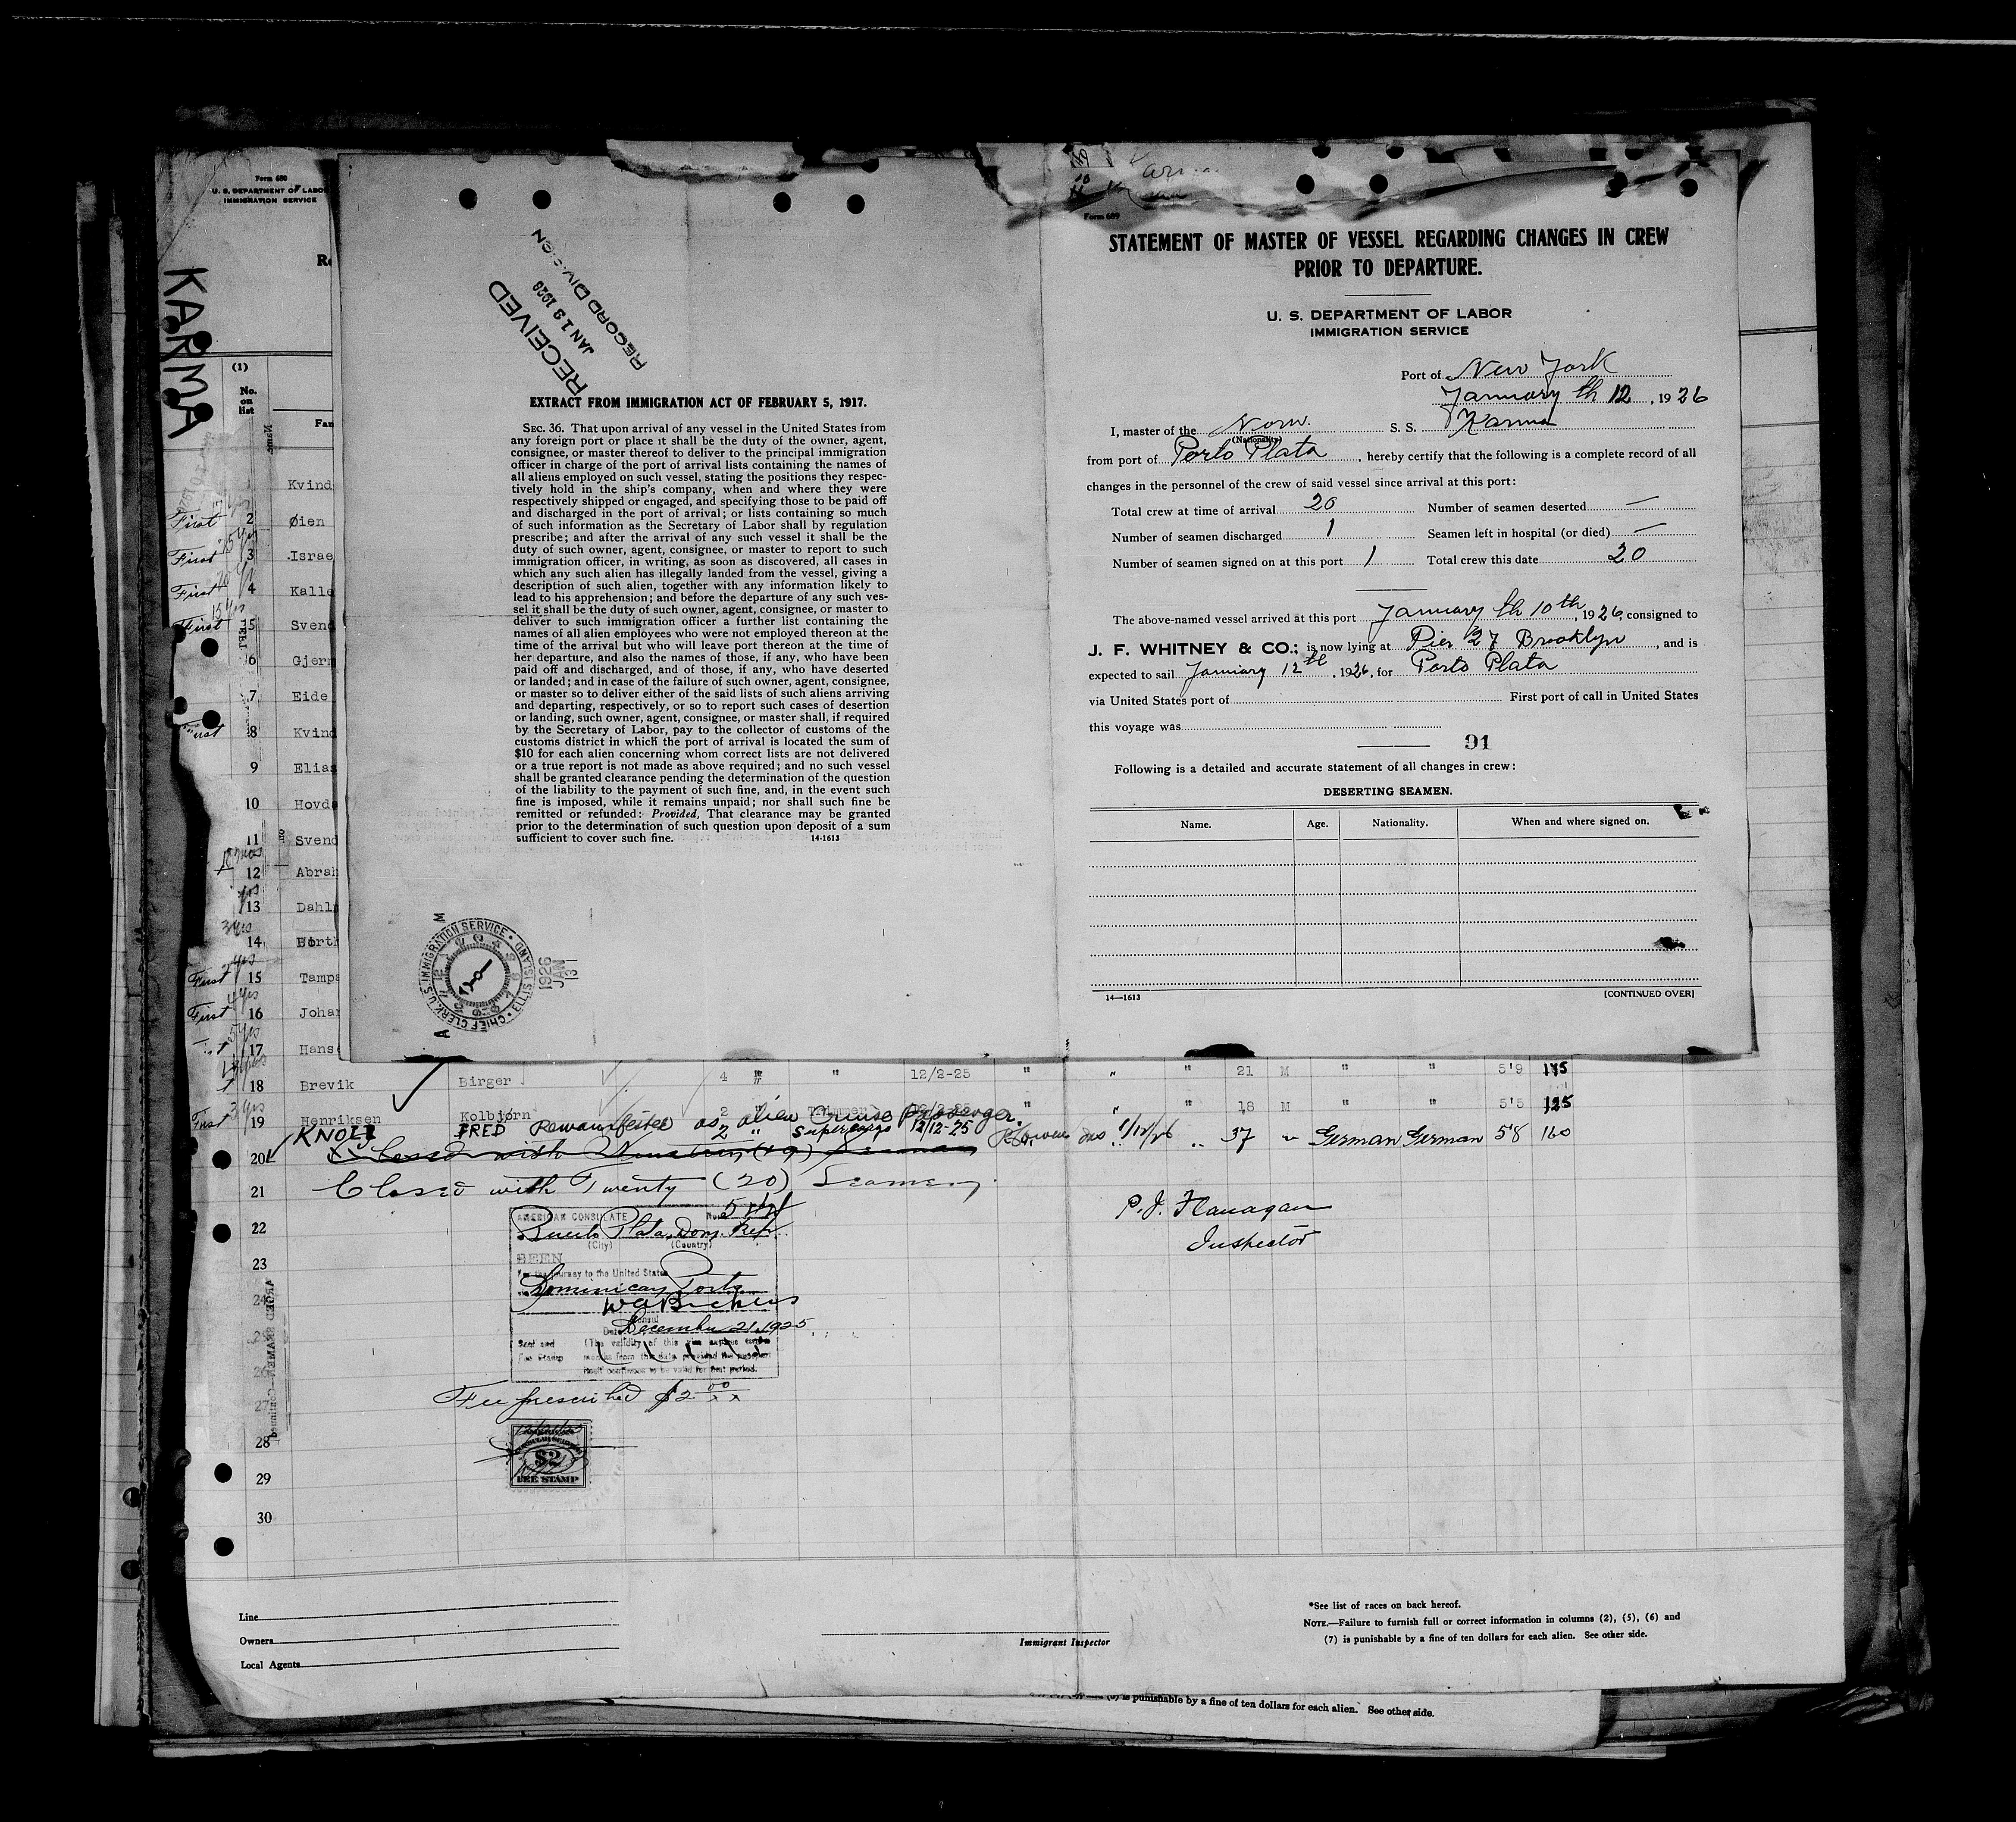 Form 680
U. S. DEPARTMENT OF LABOR
IMMIGRATION SERVICE
KARMA
(1)
No.
on
list
Kvind
First 2 Øien
First 3 Israe
First 4 Kalle
First 5 Svend
6 Gjerm
7 Eide
8 Kvind
9 Elias
10 Hovd
11 Svend
12 Abrah
13 Dahl
14
First 15 Tampa
First 16 Johan
17 Hans
RECEIVED
JAN 13 1926
RECORD DIVISION
EXTRACT FROM IMMIGRATION ACT OF FEBRUARY 5, 1917.
SEC. 36. That upon arrival of any vessel in the United States from
any foreign port or place it shall be the duty of the owner, agent,
consignee, or master thereof to deliver to the principal immigration
officer in charge of the port of arrival lists containing the names of
all aliens employed on such vessel, stating the positions they respec-
tively hold in the ship's company, when and where they were
respectively shipped or engaged, and specifying those to be paid off
and discharged in the port of arrival; or lists containing so much
of such information as the Secretary of Labor shall by regulation
prescribe; and after the arrival of any such vessel it shall be the
duty of such owner, agent, consignee, or master to report to such
immigration officer, in writing, as soon as discovered, all cases in
which any such alien has illegally landed from the vessel, giving a
description of such alien, together with any information likely to
lead to his apprehension; and before the departure of any such ves-
sel it shall be the duty of such owner, agent, consignee, or master to
deliver to such immigration officer a further list containing the
names of all alien employees who were not employed thereon at the
time of the arrival but who will leave port thereon at the time of
her departure, and also the names of those, if any, who have been
paid off and discharged, and of those, if any, who have deserted
or landed; and in case of the failure of such owner, agent, consignee,
or master so to deliver either of the said lists of such aliens arriving
and departing, respectively, or so to report such cases of desertion
or landing, such owner, agent, consignee, or master shall, if required
by the Secretary of Labor, pay to the collector of customs of the
customs district in which the port of arrival is located the sum of
$10 for each alien concerning whom correct lists are not delivered
or a true report is not made as above required; and no such vessel
shall be granted clearance pending the determination of the question
of the liability to the payment of such fine, and, in the event such
fine is imposed, while it remains unpaid; nor shall such fine be
remitted or refunded: Provided, That clearance may be granted
prior to the determination of such question upon deposit of a sum
sufficient to cover such fine. 14-1613
CHIEF CLERK, U. S. IMMIGRATION SERVICE • ELLIS ISLAND
1926
JAN
13
Form 689
STATEMENT OF MASTER OF VESSEL REGARDING CHANGES IN CREW
PRIOR TO DEPARTURE.
U. S. DEPARTMENT OF LABOR
IMMIGRATION SERVICE
Port of New York
January th 12, 1926
I, master of the Norw. S. S. Karma
(Nationality)
from port of Porto Plata, hereby certify that the following is a complete record of all
changes in the personnel of the crew of said vessel since arrival at this port:
Total crew at time of arrival 20 Number of seamen deserted —
Number of seamen discharged 1 Seamen left in hospital (or died) —
Number of seamen signed on at this port 1 Total crew this date 20
The above-named vessel arrived at this port January th 10th, 1926, consigned to
J. F. WHITNEY & CO.; is now lying at Pier 27 Brooklyn, and is
expected to sail January 12th, 1926, for Porto Plata
via United States port of First port of call in United States
this voyage was
91
Following is a detailed and accurate statement of all changes in crew:
DESERTING SEAMEN.
Name. Age. Nationality. When and where signed on.
14—1613 [CONTINUED OVER]
18 Brevik Birger 4 " " 12/2-25 " " " 21 M " " 5'9 175
First 19 Henriksen Kolbjørn 2 " Trimmer 12/2-25 " " " 18 M " " 5'5 125
KNOLL FRED Remanifested as alien Cruise passenger.
20 2 " Supercargo 12/12-25 1/12/26 37 " German German 5'8 160
Closed with Nineteen (19) Seamen
21 Closed with Twenty (20) Seamen
P. J. Flanagan
Inspector
22
23
24
25
26
27
28
29
30
AMERICAN CONSULATE No.
Puerto Plata, Dom. Rep.
(City) (Country)
SEEN
For the journey to the United States
Dominican Ports
Consul
December 21, 1925
Seal and (The validity of this visa expires twelve
Fee Stamp months from this date provided the passport
itself continues to be valid for that period.
Fee prescribed $2 00
$2
FEE STAMP
Line
Owners
Local Agents
Immigrant Inspector
*See list of races on back hereof.
NOTE.—Failure to furnish full or correct information in columns (2), (5), (6) and
(7) is punishable by a fine of ten dollars for each alien. See other side.
is punishable by a fine of ten dollars for each alien. See other side.